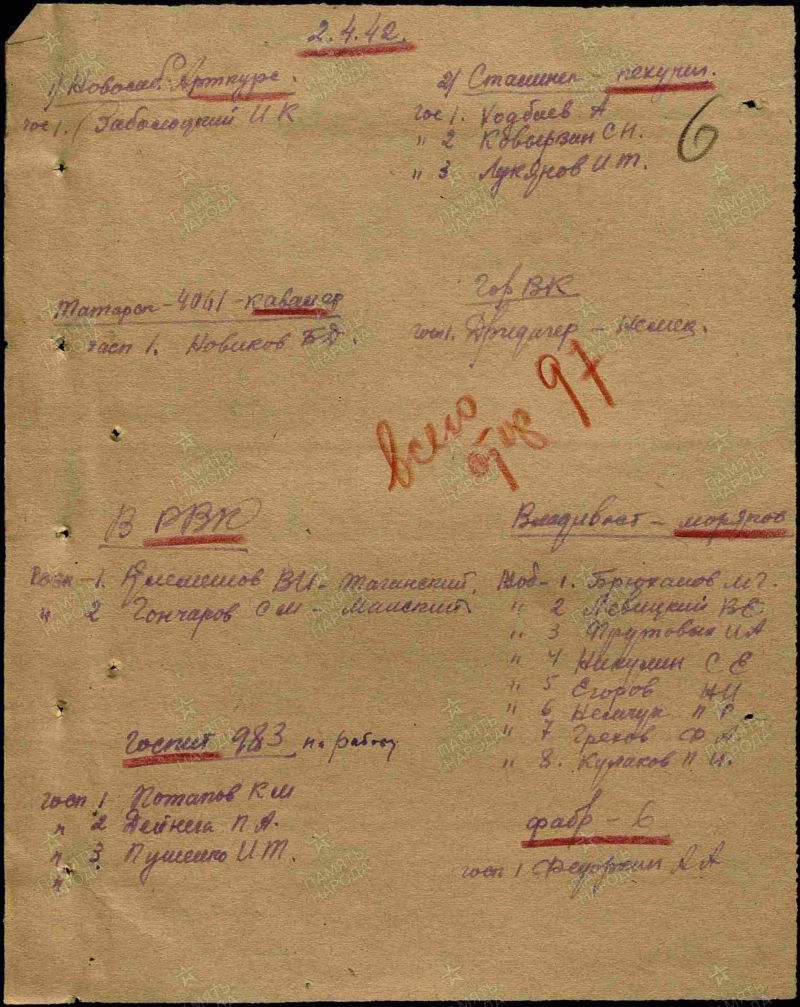 2.4.42.
1) Новосиб. Арткурс.
гос 1. Заболоцкий И К
2) Сталинск - пехучил.
гос 1. Ходбаев А
" 2 С Н.
" 3 Лукянов И Т.
6
Татарск - 4061 -
госп 1. Новиков Б Д.
Гор ВК
госп 1. - немец.
всего 97
В РВК
1. В И - Таганский.
" 2 Гончаров С М - Майский
Владивост - моряков
Моб - 1. Брюханов М Г.
" 2 Левицкий В Е
" 3 Прутовых И А
" 4 Никулин С Е
" 5 Егоров Н И
" 6 Немчук П Г
" 7 Греков Ф А.
" 8. Кулаков П И.
Госпит 983 на работу
госп 1 Потапов К М
" 2 Дейнега П А.
" 3 Пушенко И Т.
"
фабр - 6
госп 1 А А
ПАМЯТЬ НАРОДА